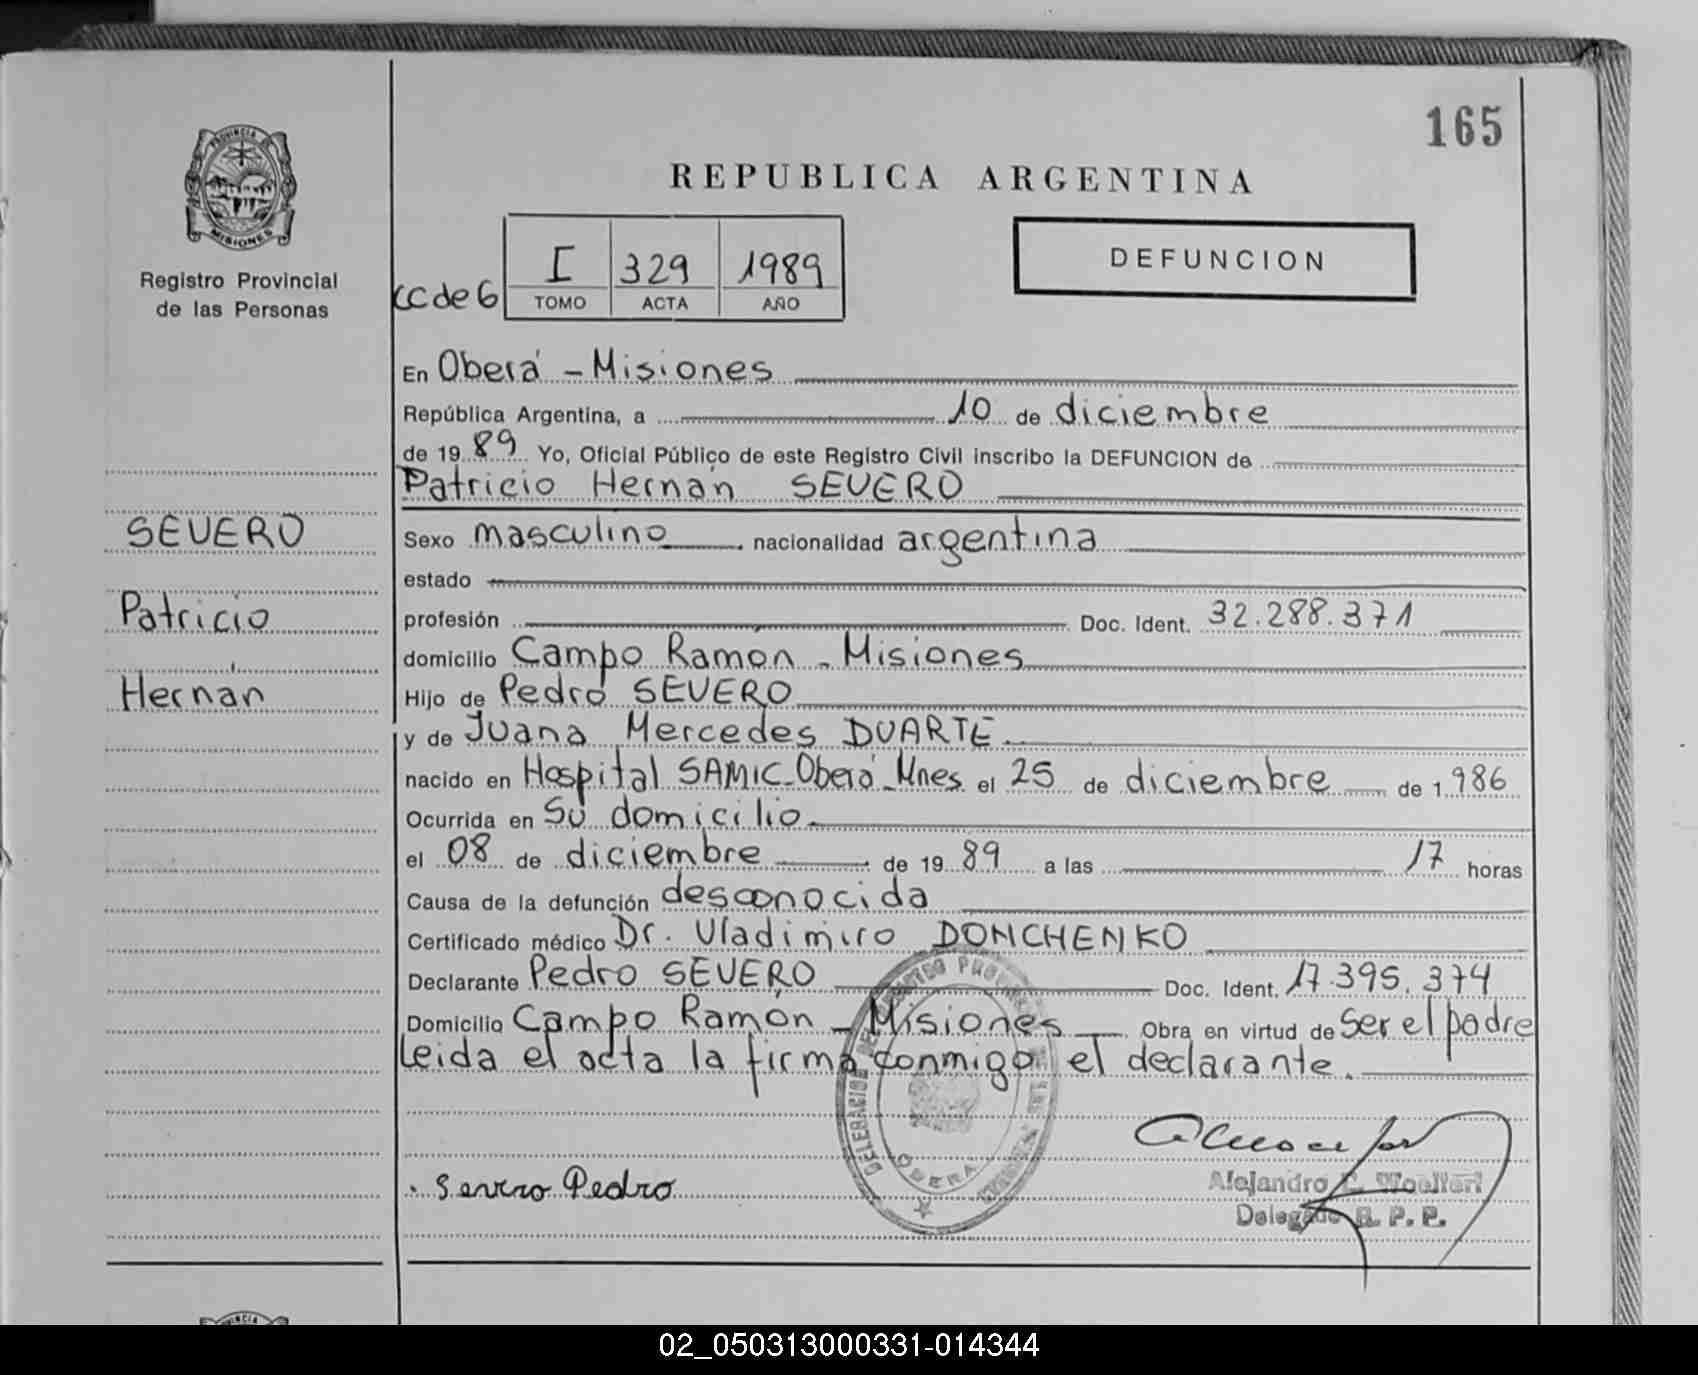 165
PROVINCIA
MISIONES
Registro Provincial
de las Personas
REPUBLICA ARGENTINA
DEFUNCION
I 329 1989
TOMO ACTA AÑO
En Oberá - Misiones
República Argentina, a 10 de diciembre
de 19 89 Yo, Oficial Público de este Registro Civil inscribo la DEFUNCION de
Patricio Hernán SEVERO
SEVERO
Patricio
Hernán
Sexo masculino nacionalidad argentina
estado
profesión Doc. Ident. 32.288.371
domicilio Campo Ramón - Misiones
Hijo de Pedro SEVERO
y de Juana Mercedes DUARTE
nacido en Hospital SAMIC-Oberá-Mnes el 25 de diciembre de 1 986
Ocurrida en Su domicilio
el 08 de diciembre de 19 89 a las 17 horas
Causa de la defunción desconocida
Certificado médico Dr. Vladimiro DONCHENKO
Declarante Pedro SEVERO Doc. Ident. 17.395.374
Domicilio Campo Ramón - Misiones Obra en virtud de Ser el padre
Leida el acta la firma conmigo el declarante.
OBERA
Severo Pedro
Alejandro
Delegado R. P. P.
02_050313000331-014344